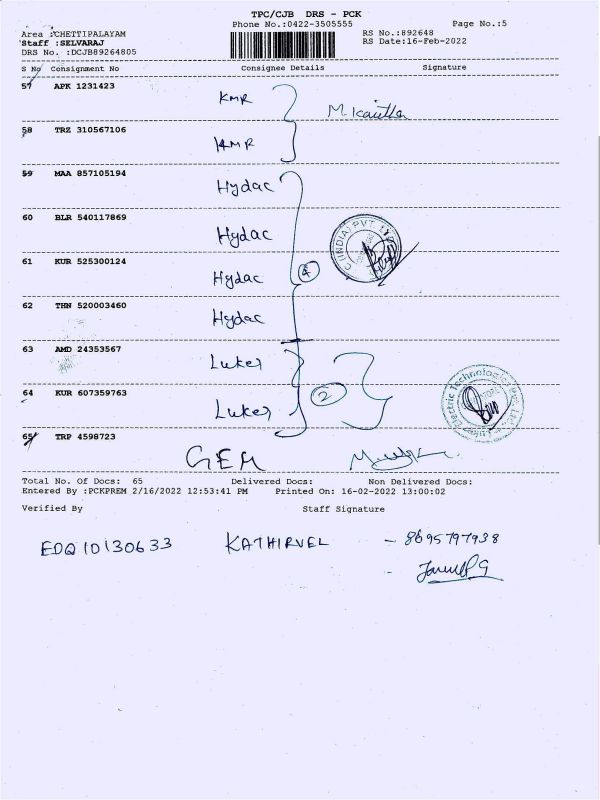 TPC/CJB DRS - PCK
Phone No.:0422-3505555 Page No.:5
Area :CHETTIPALAYAM RS No.:892648
Staff :SELVARAJ RS Date:16-Feb-2022
DRS No. :DCJB89264805
S No Consignment No Consignee Details Signature
57 APK 1231423 KMR M. Kavitha
58 TRZ 310567106 KMR
59 MAA 857105194 Hydac
60 BLR 540117869 Hydac
(INDIA) PVT. LTD
61 KUR 525300124 Hydac 4
62 THN 520003460 Hydac
63 AMD 24353567 Luker
64 KUR 607359763 Luker 2
Luker Electric Technologies Pvt. Ltd.
65 TRP 4598723 GEM
Total No. Of Docs: 65 Delivered Docs: Non Delivered Docs:
Entered By :PCKPREM 2/16/2022 12:53:41 PM Printed On: 16-02-2022 13:00:02
Verified By Staff Signature
EDQ10130633 KATHIRVEL - 8695797938